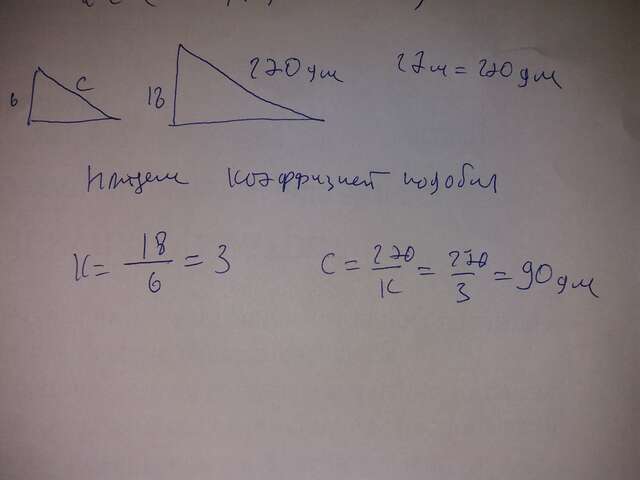 6 c 18 270 дм 27 м = 270 дм
Найдем коэффициент подобия
K = 18/6 = 3 c = 270/K = 270/3 = 90 дм